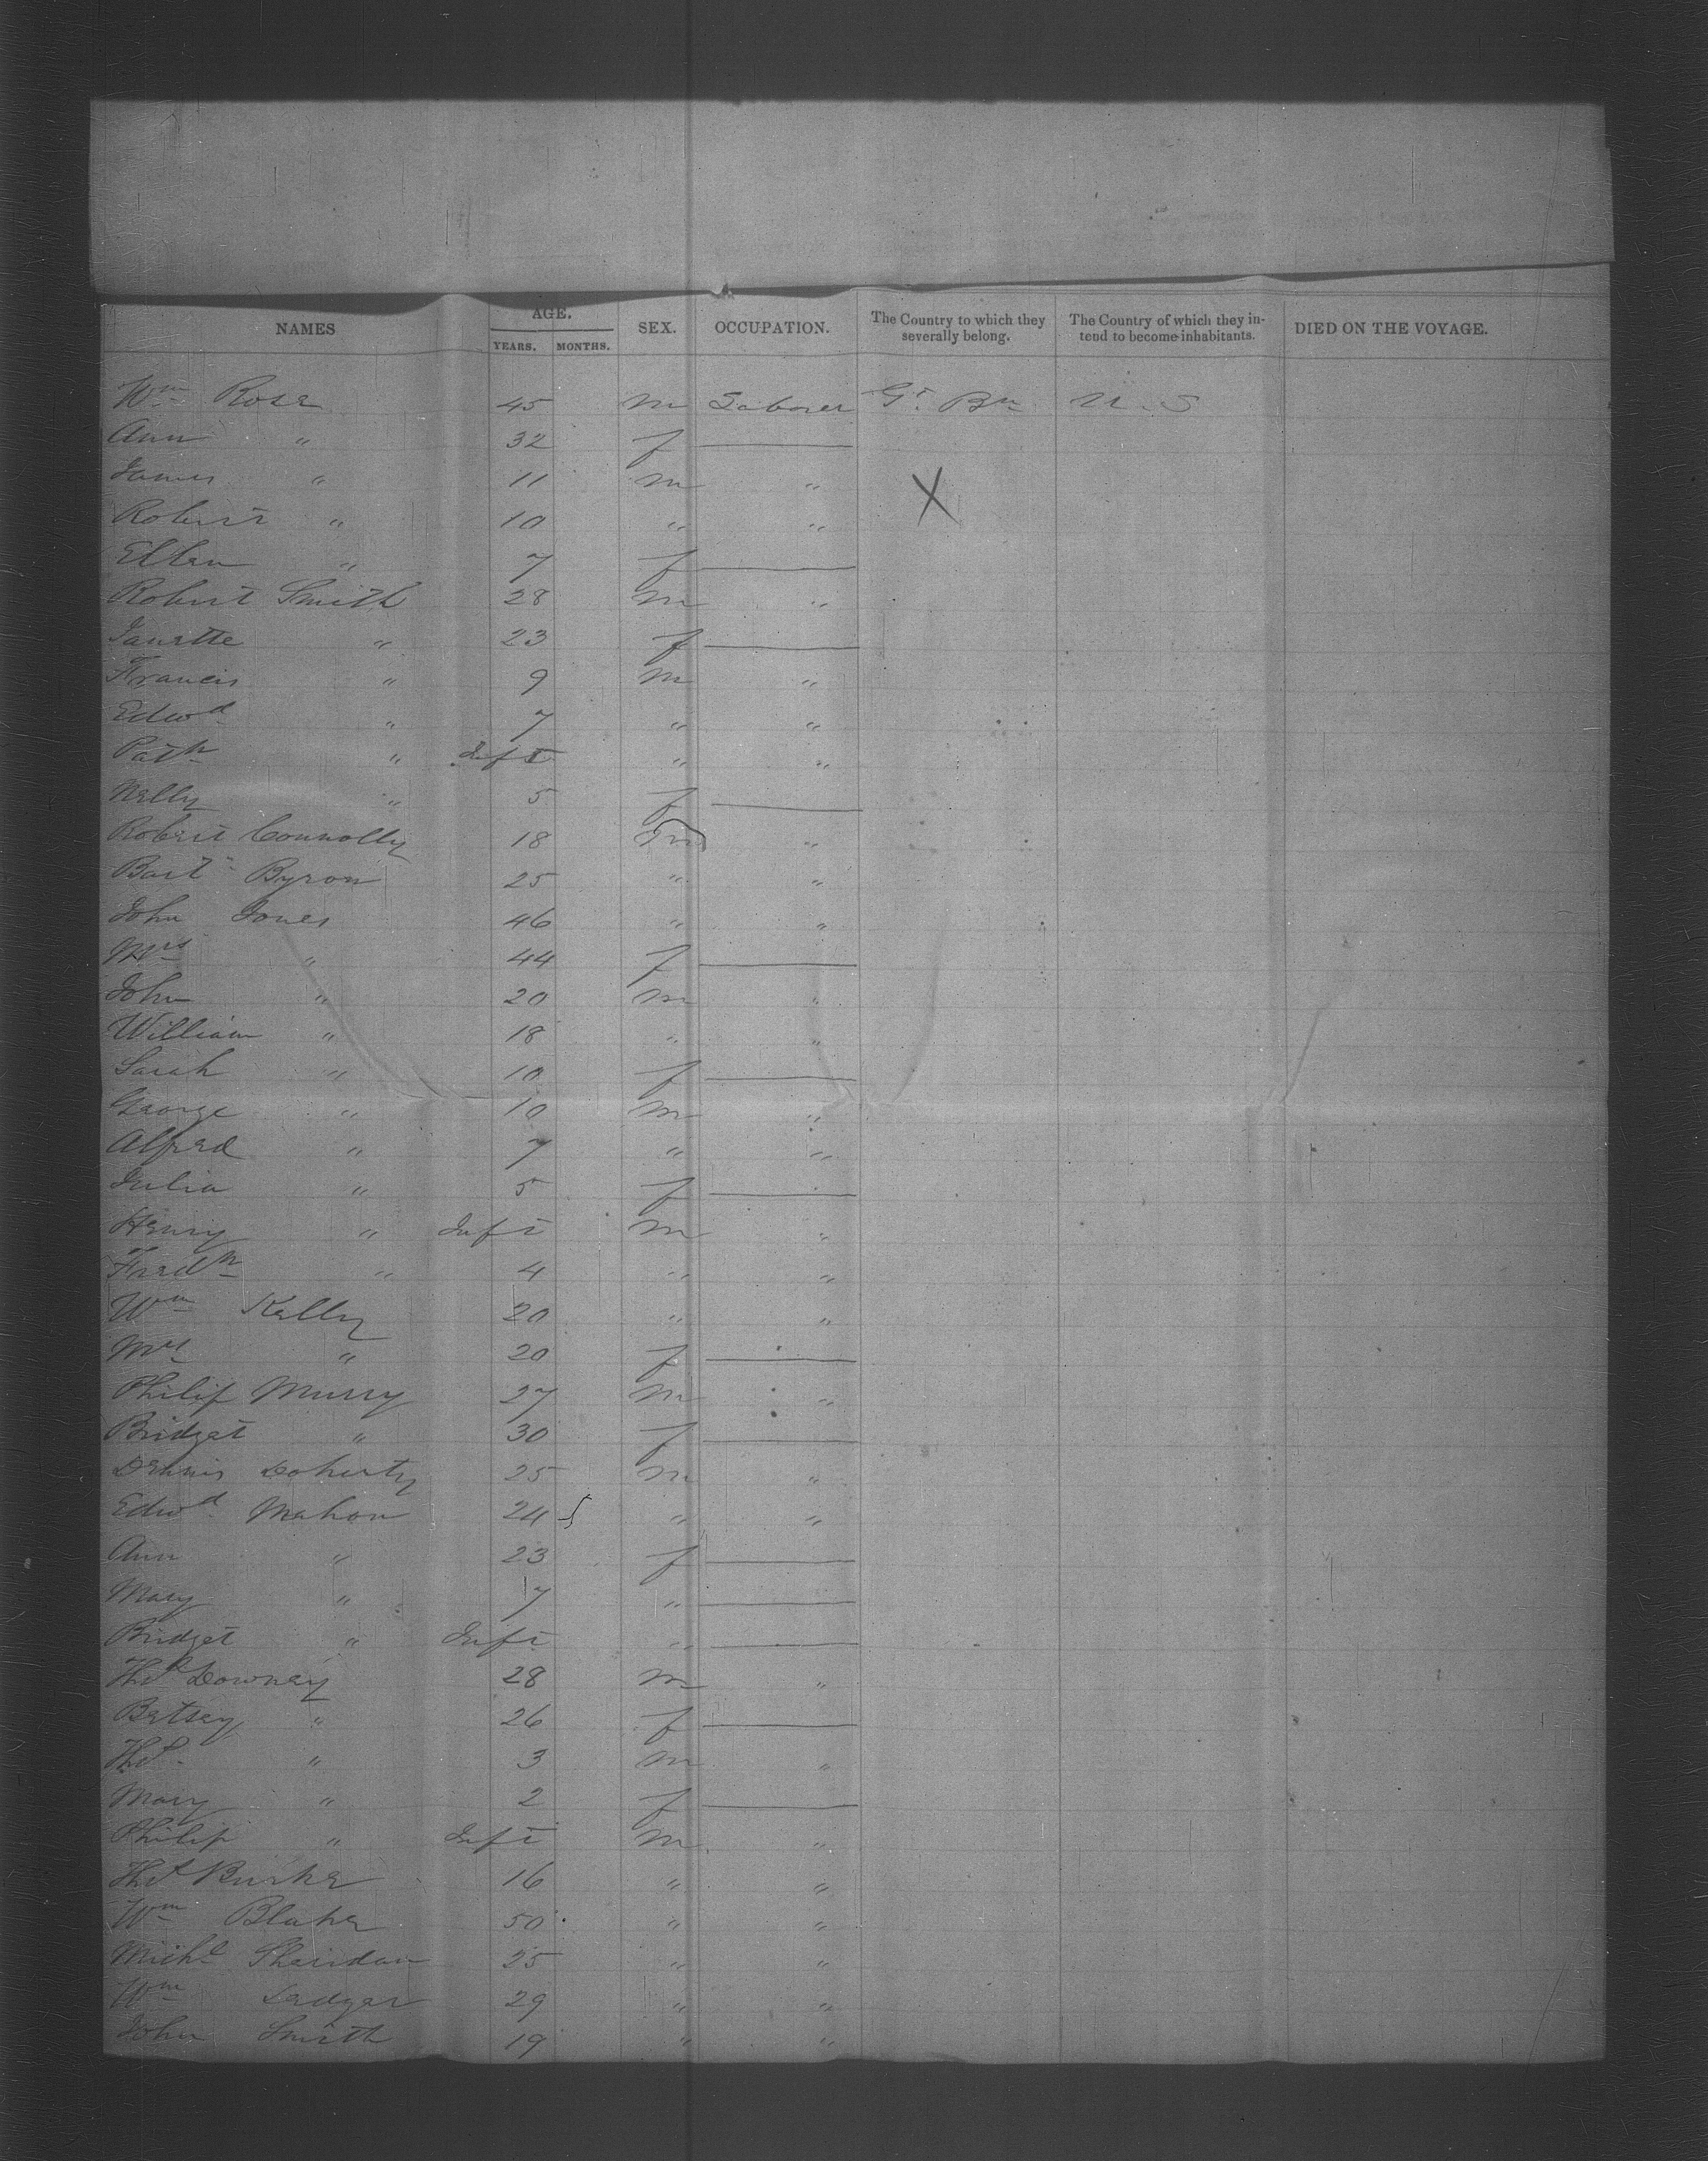 NAMES AGE. YEARS. MONTHS. SEX. OCCUPATION. The Country to which they severally belong. The Country of which they intend to become inhabitants. DIED ON THE VOYAGE.
Wm Rose 45 m Laborer Gt Bn U.S
Ann " 32 f —
James " 11 m " X
Robert " 10 " "
Ellen " 7 f —
Robert Smith 28 m "
Janette " 23 f —
Francis " 9 m "
Edwd " 7 " "
" Inft " "
Nelly " 5 f —
Robert Connolly 18 m "
Bart Byron 25 " "
John Jones 46 " "
Mrs " 44 f —
John " 20 m "
William " 18 " "
Sarah " 10 f —
George " 10 m "
Alfred " 7 " "
Julia " 5 f —
Henry " Inft m "
Fredk " 4 " "
Wm Kelly 20 " "
Mrs " 20 f —
Philip Murry 27 m "
Bridget " 30 f —
Dennis Doherty 25 m "
Edwd Mahon 24 " "
Ann " 23 f —
Mary " 7 " —
Bridget " Inft " —
Thos Downey 28 m "
Betsey " 26 f —
Thos " 3 m "
Mary " 2 f —
Philip " Inft m "
Thos Burke 16 " "
Wm Blake 50 " "
Michl Sheridan 25 " "
Wm Ledger 29 " "
John Smith 19 " "